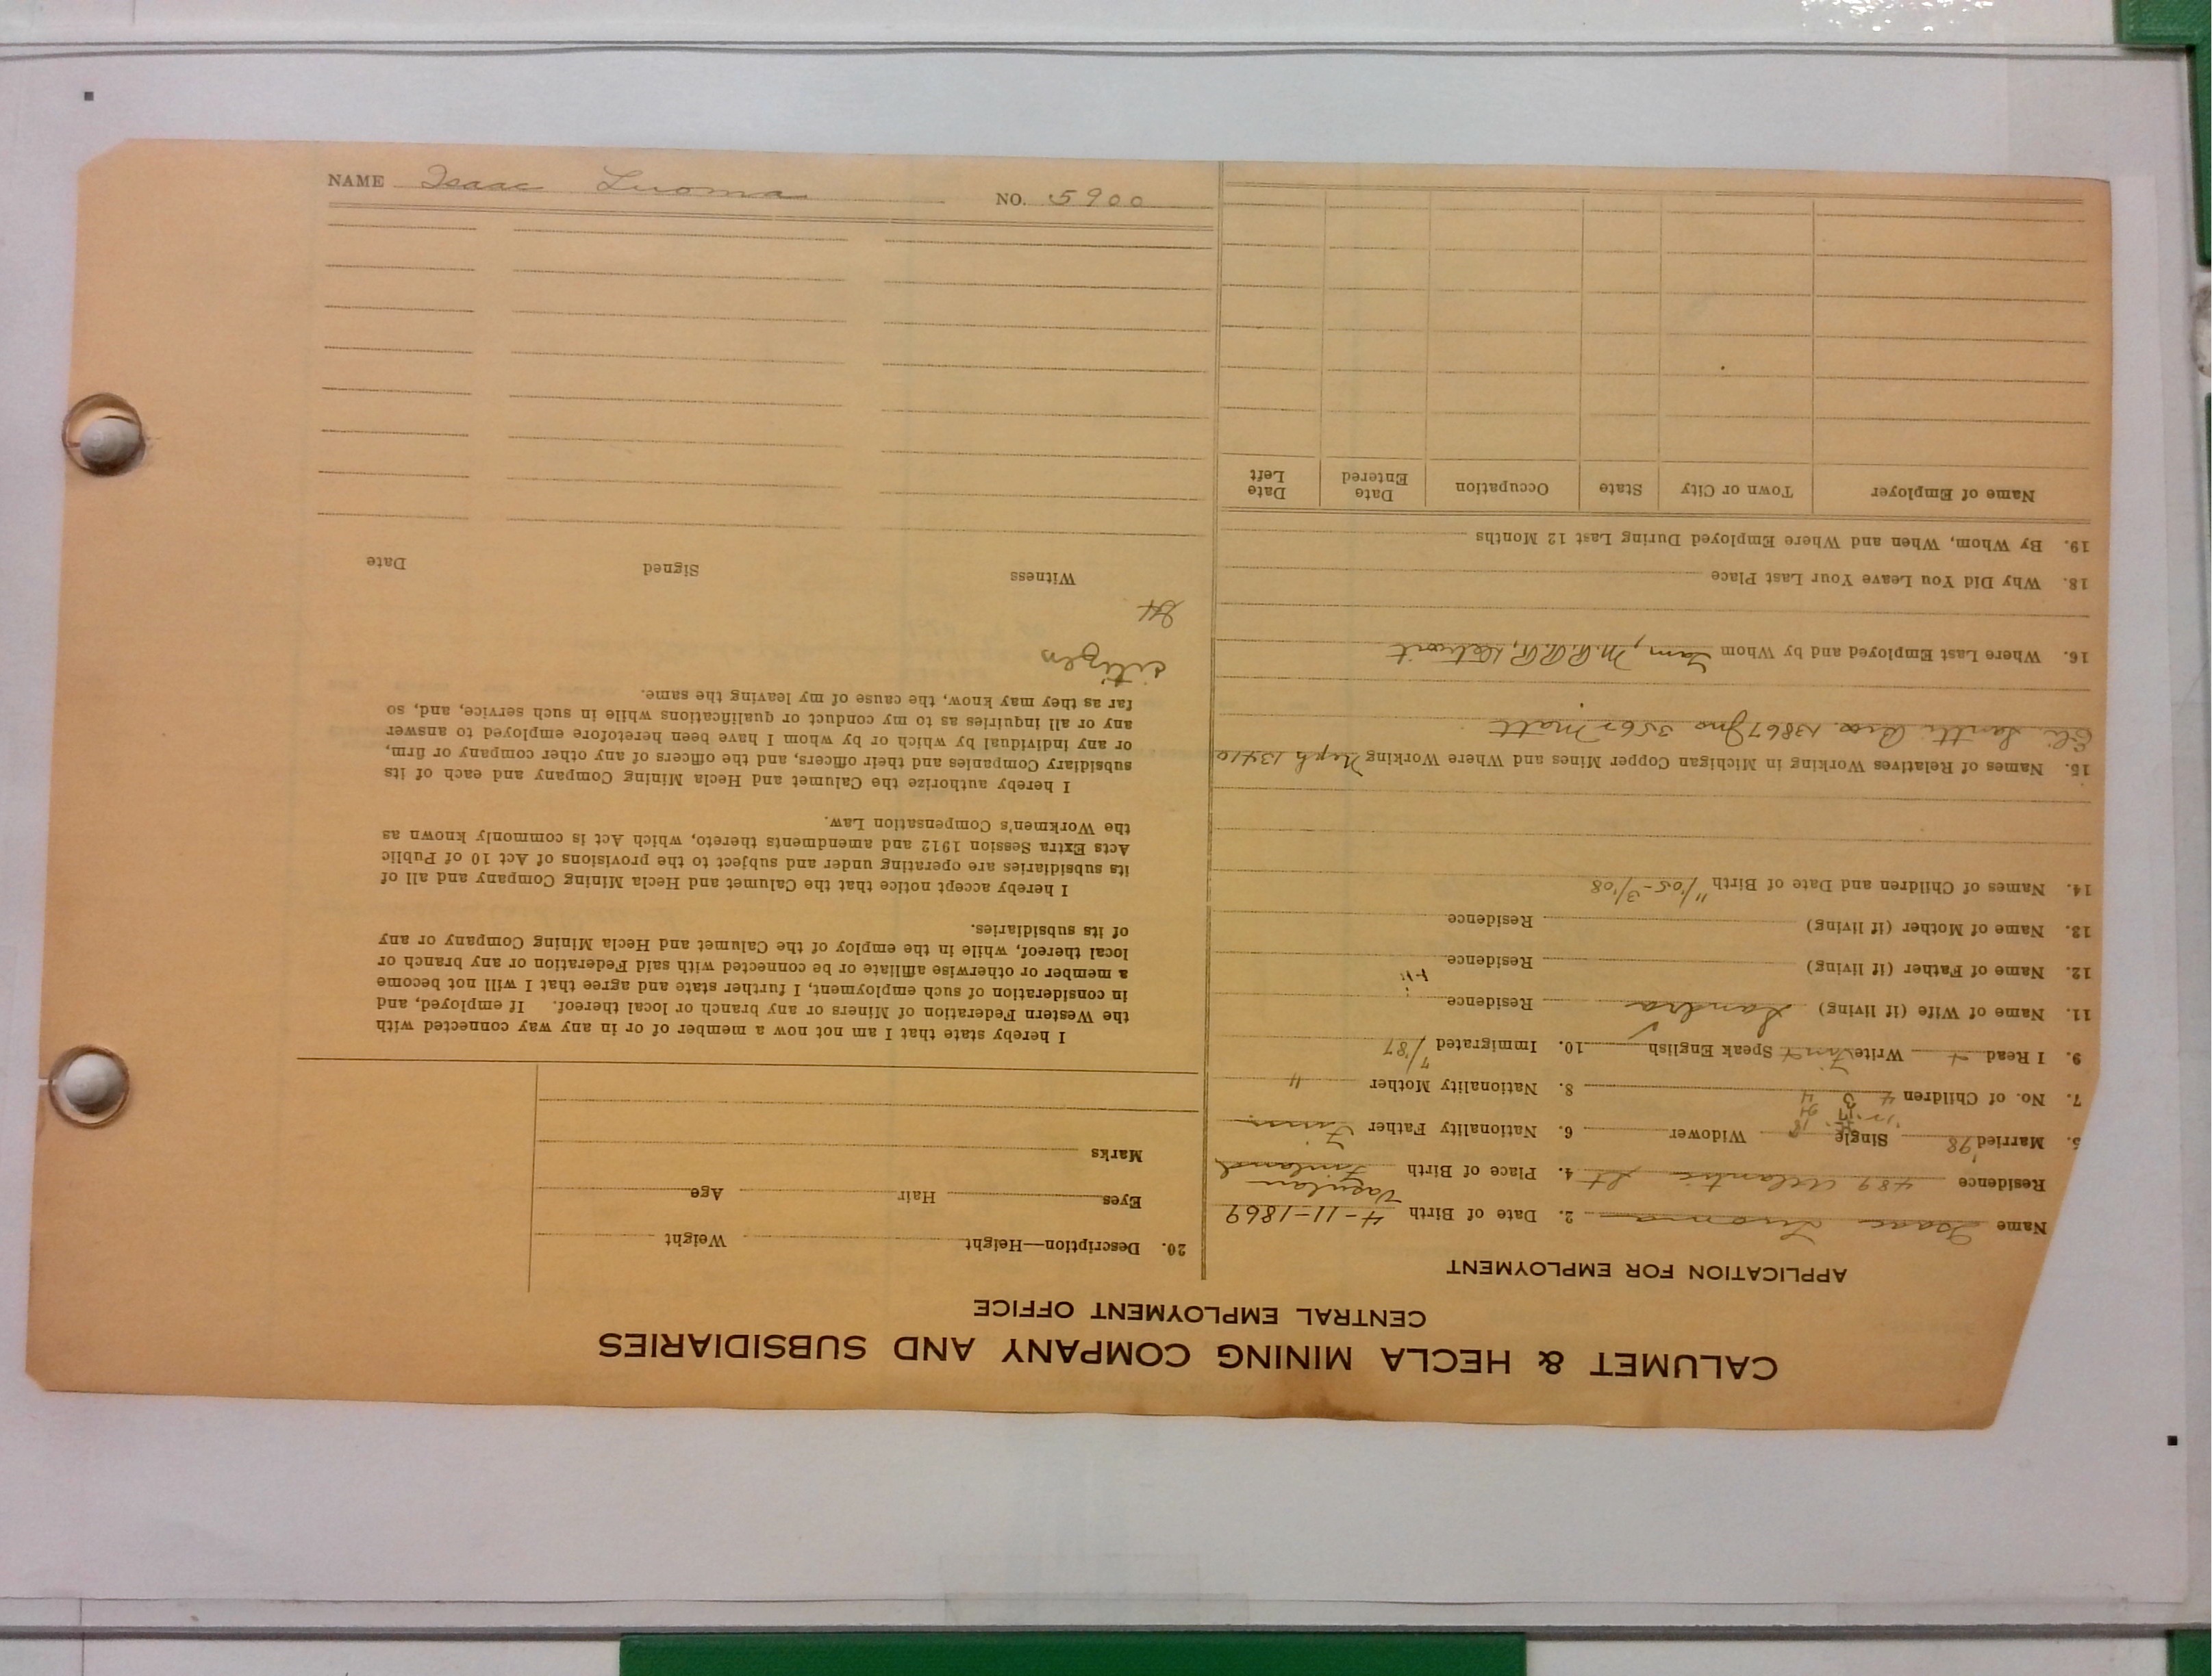 CALUMET & HECLA MINING COMPANY AND SUBSIDIARIES
CENTRAL EMPLOYMENT OFFICE
APPLICATION FOR EMPLOYMENT
Name Isaac Luoma 2. Date of Birth 4-11-1869
Residence 489 Atlantic St 4. Place of Birth Finland
5. Married '98 Single Widower 6. Nationality Father Finn
7. No. of Children 4 8. Nationality Mother "
9. I Read Write Speak English 10. Immigrated 7/87
11. Name of Wife (if living) Sandra Residence
12. Name of Father (if living) Residence
13. Name of Mother (if living) Residence
14. Names of Children and Date of Birth 11/05-3/08
15. Names of Relatives Working in Michigan Copper Mines and Where Working Neph 13410
Eli Bros. 13867 Jno 3567 Matt
16. Where Last Employed and by Whom Tam, M.C.R.R, Detroit
18. Why Did You Leave Your Last Place
19. By Whom, When and Where Employed During Last 12 Months
Name of Employer Town or City State Occupation Date Entered Date Left
20. Description—Height Weight
Eyes Hair Age
Marks
I hereby state that I am not now a member of or in any way connected with
the Western Federation of Miners or any branch or local thereof. If employed, and
in consideration of such employment, I further state and agree that I will not become
a member or otherwise affiliate or be connected with said Federation or any branch or
local thereof, while in the employ of the Calumet and Hecla Mining Company or any
of its subsidiaries.
I hereby accept notice that the Calumet and Hecla Mining Company and all of
its subsidiaries are operating under and subject to the provisions of Act 10 of Public
Acts Extra Session 1912 and amendments thereto, which Act is commonly known as
the Workmen's Compensation Law.
I hereby authorize the Calumet and Hecla Mining Company and each of its
subsidiary Companies and their officers, and the officers of any other company or firm,
or any individual by which or by whom I have been heretofore employed to answer
any or all inquiries as to my conduct or qualifications while in such service, and, so
far as they may know, the cause of my leaving the same.
citizen
Witness Signed Date
NAME Isaac Luoma NO. 5900